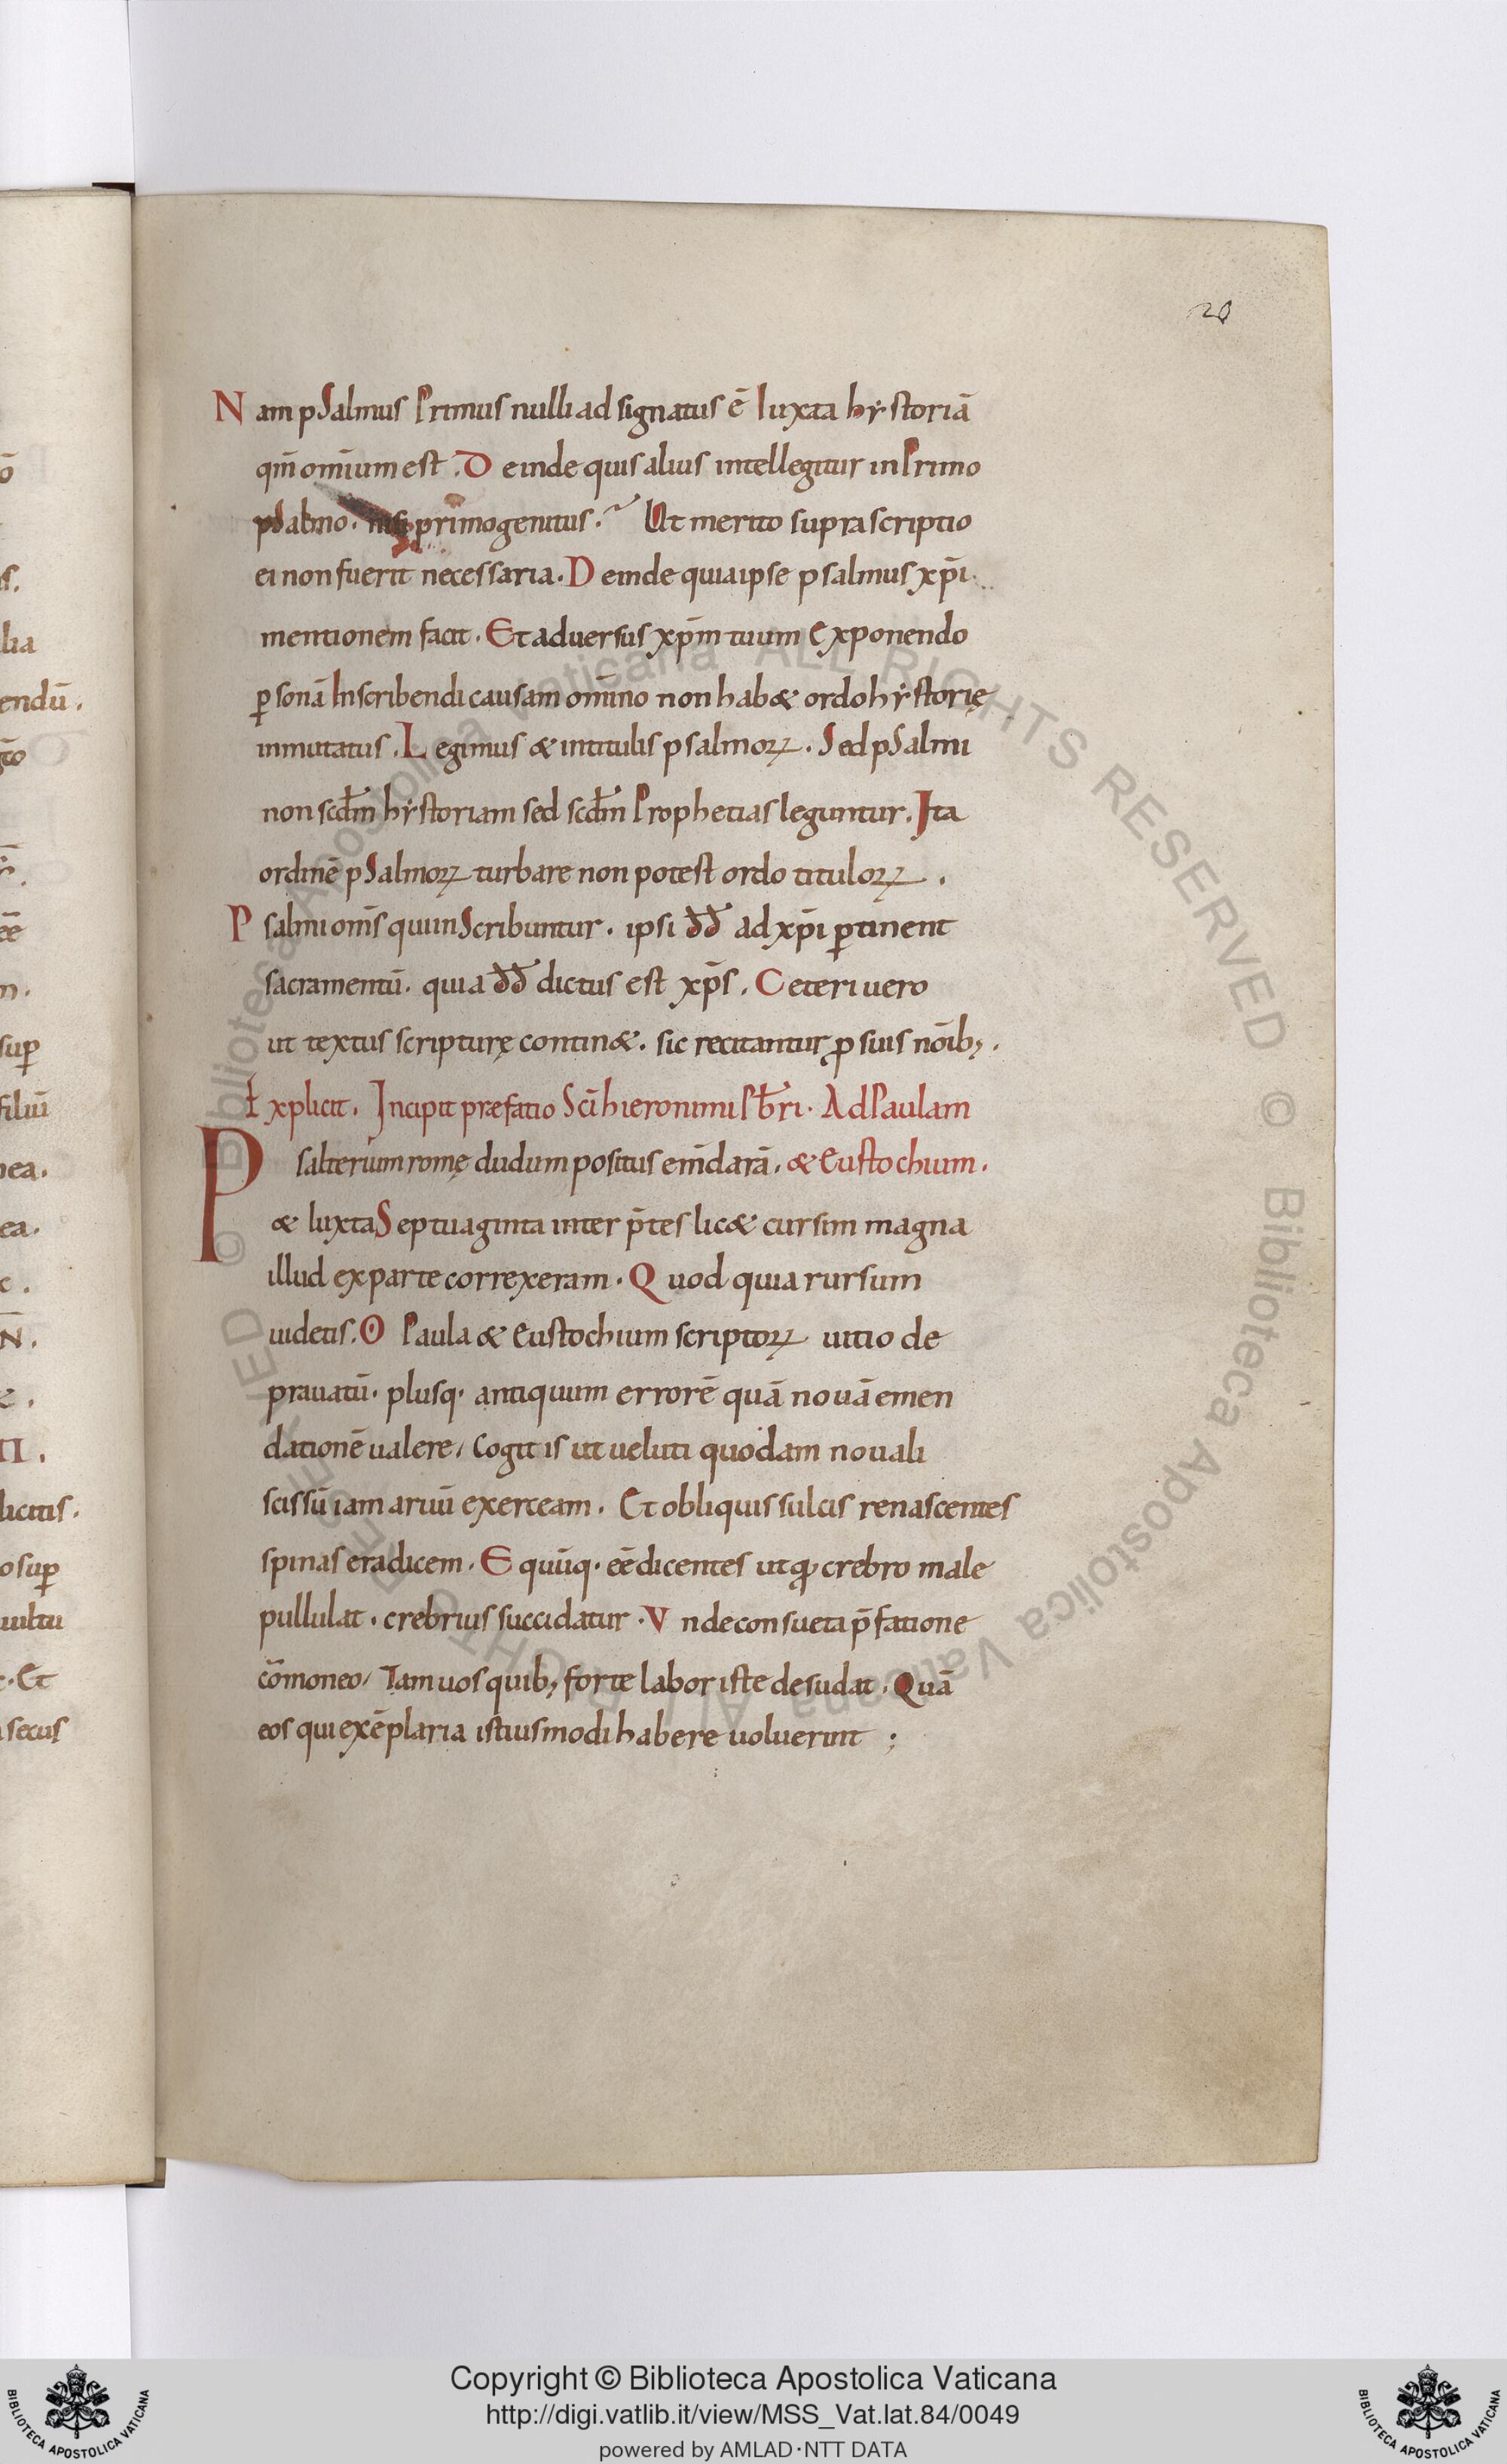 20
Nam pSalmus Primus nulli ad signatus ē Iuxta hẏstoriā
qm̄ omīum est. Deinde quis alius intellegitur in Primo
pSalmo. nisi primogenitus. Ut merito suprascriptio
ei non fuerit necessaria. Deinde quia ipse psalmus xp̄i
mentionem facit. Et aduersus xp̄m tuum Exponendo
ꝑsonā Inscribendi causam omīno non hab& ordo hẏstorię
inmutatus. Legimus & intitulis psalmoꝝ. Sed pSalmi
non scdm̄ hẏstoriam sed scdm̄ Prophetias leguntur. Ita
ordinē pSalmoꝝ turbare non potest ordo tituloꝝ.
Psalmi om̄s qui inScribuntur. ipsi dd ad xp̄i ꝑtinent
sacramentū. quia dd dictus est xp̄s. Ceteri uero
ut textus scripturę contin&. sic recitantur ꝓ suis noīb;.
Explicit. Incipit præfatio Sc̄i hieronimi Pbr̄i. Ad Paulam
Psalterium romę dudum positus em̄darā. & Eustochium.
& Iuxta Septuaginta inter p̄tes lic& cursim magna
illud ex parte correxeram. Quod quia rursum
uidetis. O Paula & Eustochium scriptoꝝ uitio de
prauatū. plusq. antiquum errorē quā nouā emen
dationē ualere, Cogitis ut ueluti quodam nouali
scissū iam aruū exerceam. Et obliquis sulcis renascentes
spinas eradicem. Equūq. eē dicentes ut ꝙ crebro male
pullulat. crebrius succidatur. Vnde consueta p̄fatione
cōmoneo, Tam uos quib; forte labor iste desudat. Quā
eos qui exēplaria istiusmodi habere uoluerint ;
Copyright © Biblioteca Apostolica Vaticana
http://digi.vatlib.it/view/MSS_Vat.lat.84/0049
powered by AMLAD·NTT DATA